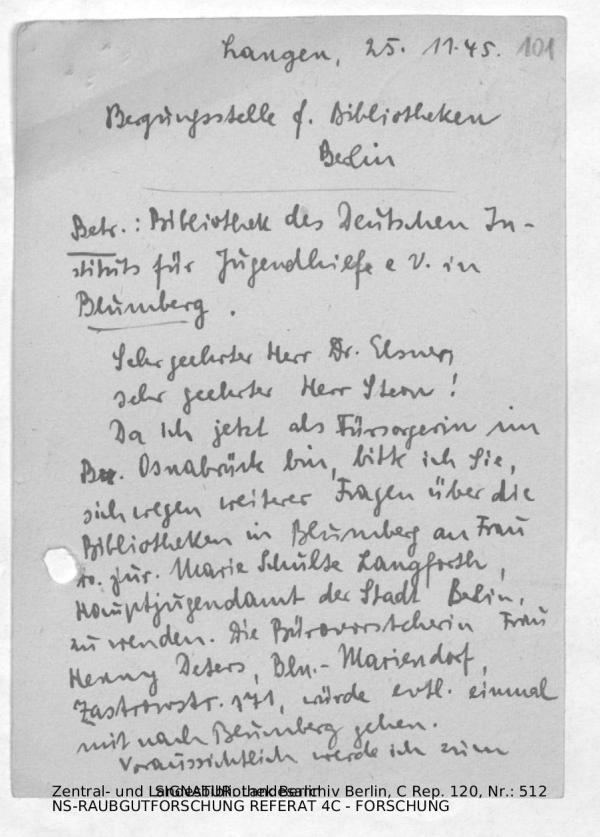 Langen, 25. 11.45. 101
Bergungsstelle f. Bibliotheken
Berlin
Betr.: Bibliothek des Deutschen In-
stituts für Jugendhilfe e V. in
Blumberg.
Sehr geehrter Herr Dr. Elsner,
sehr geehrter Herr Stern!
Da ich jetzt als Fürsorgerin im
Bez. Osnabrück bin, bitte ich Sie,
sich wegen weiterer Fragen über die
Bibliotheken in Blumberg an Frau
Dr. jur. Marie Schulte Langforth,
Hauptjugendamt der Stadt Berlin,
zu wenden. Die Bürovorsteherin Frau
Henny Deters, Bln.- Mariendorf,
Zastrowstr. 171, würde evtl. einmal
mit nach Blumberg gehen.
Voraussichtlich werde ich zum
Zentral- und Landesbibliothek Berlin
SIGNATUR: Landesarchiv Berlin, C Rep. 120, Nr.: 512
NS-RAUBGUTFORSCHUNG REFERAT 4C - FORSCHUNG